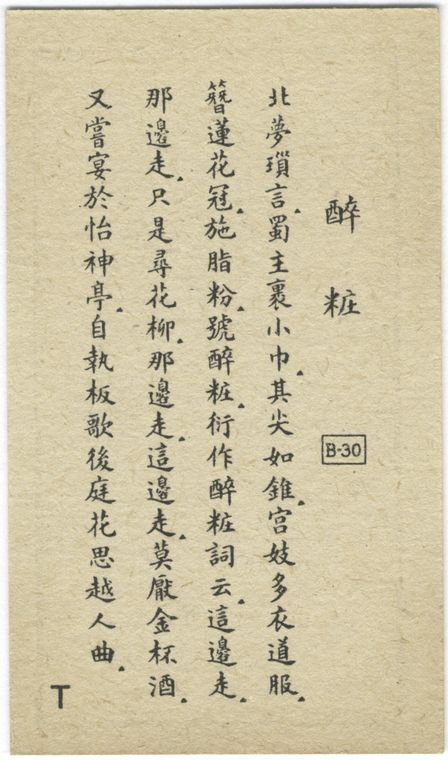 醉粧
B-30
北夢瑣言蜀主裹小巾其尖如錐宮妓多衣道服
簪蓮花冠施脂粉號醉粧衍作醉粧詞云這邊走
那邊走只是尋花柳那邊走這邊走莫厭金杯酒
又嘗宴於怡神亭自執板歌後庭花思越人曲
T